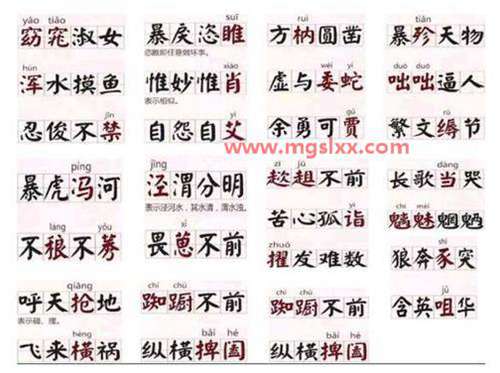 yǎo tiǎo
窈窕淑女
hún
浑水摸鱼
jīn
忍俊不禁
píng
暴虎冯河
láng yǒu
不稂不莠
qiāng
呼天抢地
表示碰、撞。
hèng
飞来横祸
suī
暴戾恣睢
xiào
惟妙惟肖
表示相似。
yì
自怨自艾
jīng
泾渭分明
表示泾河水，其水清，渭水浊。
xǐ
畏葸不前
chí chú
踟蹰不前
bǎi hé
纵横捭阖
ruì
方枘圆凿
wēi yí
虚与委蛇
gǔ
余勇可贾
zī jū
趑趄不前
yì
苦心孤诣
zhuó
擢发难数
chí chú
踟蹰不前
bǎi hé
纵横捭阖
tiǎn
暴殄天物
duō duō
咄咄逼人
rù
繁文缛节
dàng
长歌当哭
chī mèi
魑魅魍魉
shǐ
狼奔豕突
jǔ
含英咀华
www.mgslxx.com